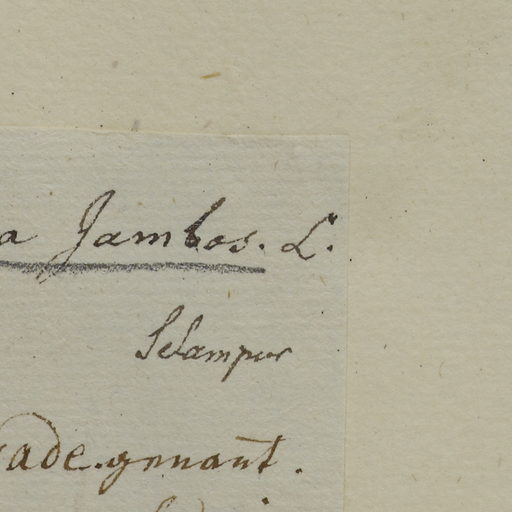 a Jambos. L.
Selampur
ade. genant.